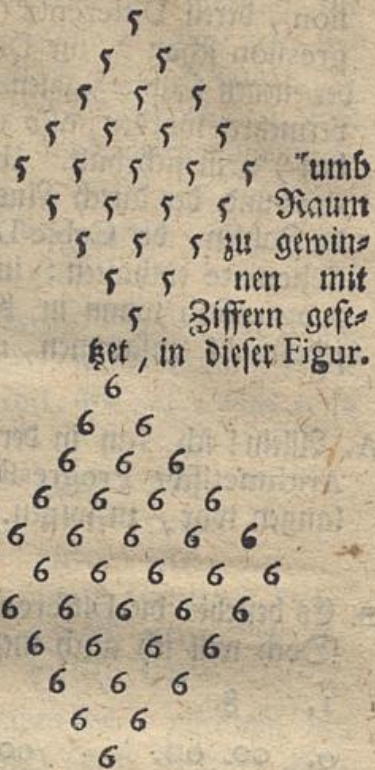 5
5 5
5 5 5
5 5 5 5
5 5 5 5 5 umb
5 5 5 5 Raum
5 5 5 zu gewin⸗
5 5 nen mit
5 Ziffern geſe⸗
tzet, in dieſer Figur.
6
6 6
6 6 6
6 6 6 6
6 6 6 6 6
6 6 6 6 6
6 6 6 6 6
6 6 6 6
6 6 6
6 6
6